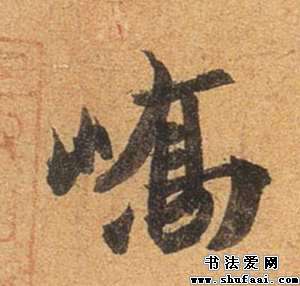 嶠
书法爱网
www.shufaai.com